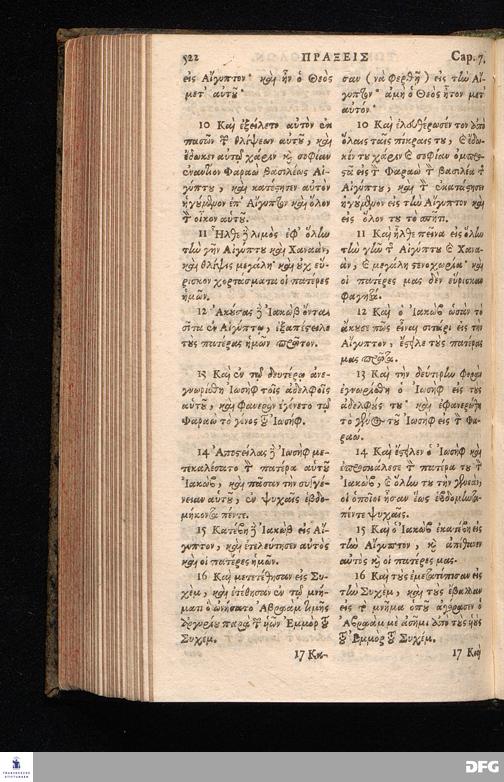 522
ΠΡΑΞΕΙΣ
Cap. 7.
εἰς Αἴγυπτον· καὶ ἦν ὁ Θεὸς
μετ' αὐτοῦ·
10 Καὶ ἐξείλετο αὐτὸν ἐκ
πασῶν τ̃ θλίψεων αὐτοῦ, καὶ
ἔδωκεν αὐτῷ χάριν κὶ σοφίαν
ἐναντίον Φαραὼ βασιλέως Αἰ-
γύπτου, καὶ κατέστησεν αὐτὸν
ἡγούμενον ἐπ' Αἴγυπτον καὶ ὅλον
τ̀ οἶκον αὑτοῦ.
11 Ἦλθε δὲ λιμὸς ἐφ' ὅλην
τὴν γῆν Αἰγύπτου καὶ Χαναὰν,
καὶ θλίψις μεγάλη· καὶ οὐχ εὕ-
ρισκον χορτάσματα οἱ πατέρες
ἡμῶν.
12 Ἀκούσας δὲ Ἰακὼβ ὄντα
σῖτα ἐν Αἰγύπτῳ, ἐξαπέστειλε
τοὺς πατέρας ἡμῶν πρῶτον.
13 Καὶ ἐν τῷ δευτέρῳ ἀνε-
γνωρίσθη Ἰωσὴφ τοῖς ἀδελφοῖς
αὑτοῦ, καὶ φανερὸν ἐγένετο τῷ
Φαραὼ τὸ γένος τοῦ Ἰωσήφ.
14 Ἀποστείλας δὲ Ἰωσὴφ με-
τεκαλέσατο τ̀ πατέρα αὑτοῦ
Ἰακὼβ, καὶ πᾶσαν τὴν συγγέ-
νειαν αὑτοῦ, ἐν ψυχαῖς ἑβδο-
μήκοντα πέντε.
15 Κατέβη δὲ Ἰακὼβ εἰς Αἴ-
γυπτον, καὶ ἐτελεύτησεν αὐτὸς
καὶ οἱ πατέρες ἡμῶν.
16 Καὶ μετετέθησαν εἰς Συ-
χέμ, καὶ ἐτέθησαν ἐν τῷ μνή-
ματι ὃ ὠνήσατο Ἀβραὰμ τιμῆς
ἀργυρίου παρὰ τ̃ υἱῶν Ἐμμὸρ τοῦ
Συχέμ.
17 Κα-
σαν (νὰ φερθῇ) εἰς τὴν Αἴ-
γυπτον· ἀμὴ ὁ Θεὸς ἦτον μετ'
αὐτόν·
10 Καὶ ἐλευθέρωσέν τον ἀπὸ
ὅλαις ταῖς πίκραις του, καὶ ἔδω-
κέν του χάριν καὶ σοφίαν ὀμπρο-
στὰ εἰς τ̀ Φαραὼ τ̀ βασιλέα τ̃
Αἰγύπτου, καὶ τ̀ ἐκατάστησεν
ἡγούμενον εἰς τὴν Αἴγυπτον καὶ
εἰς ὅλον του τὸ σπίτι.
11 Καὶ ἦλθε πεῖνα εἰς ὅλην
τὴν γῆν τ̃ Αἰγύπτου καὶ Χανα-
ὰν, καὶ μεγάλη στενοχωρία· καὶ
οἱ πατέρες μας δὲν εὕρισκαν
φαγητά.
12 Καὶ ὁ Ἰακὼβ ὡσὰν τὸ
ἄκουσε πῶς εἶναι σιτάρι εἰς τὴν
Αἴγυπτον, ἔστειλε τοὺς πατέρας
μας πρῶτα.
13 Καὶ τὴν δευτέραν φορὰν
ἐγνωρίσθη ὁ Ἰωσὴφ εἰς τοὺς
ἀδελφούς του· καὶ ἐφανερώθη
τὸ γένος τοῦ Ἰωσὴφ εἰς τ̀ Φα-
ραώ.
14 Καὶ ἔστειλεν ὁ Ἰωσὴφ καὶ
ἐπροσκάλεσε τ̀ πατέρα του τ̀
Ἰακὼβ, καὶ ὅλην του τὴν γενεὰν,
οἱ ὁποῖοι ἦσαν ἕως ἑβδομῆντα
πέντε ψυχαῖς.
15 Καὶ ὁ Ἰακὼβ ἐκατέβη εἰς
τὴν Αἴγυπτον, κὶ ἀπέθανεν
αὐτὸς κὶ οἱ πατέρες μας.
16 Καὶ τοὺς ἐμετατόπισαν εἰς
τὴν Συχὲμ, καὶ τοὺς ἔβαλαν
εἰς τὸ μνῆμα ὁποῦ ἀγόρασεν ὁ
Ἀβραὰμ μὲ ἀσῆμι ἀπὸ τοὺς υἱοὺς
τοῦ Ἐμμὸρ τοῦ Συχέμ.
17 Καὶ
FRANCKESCHE STIFTUNGEN
DFG